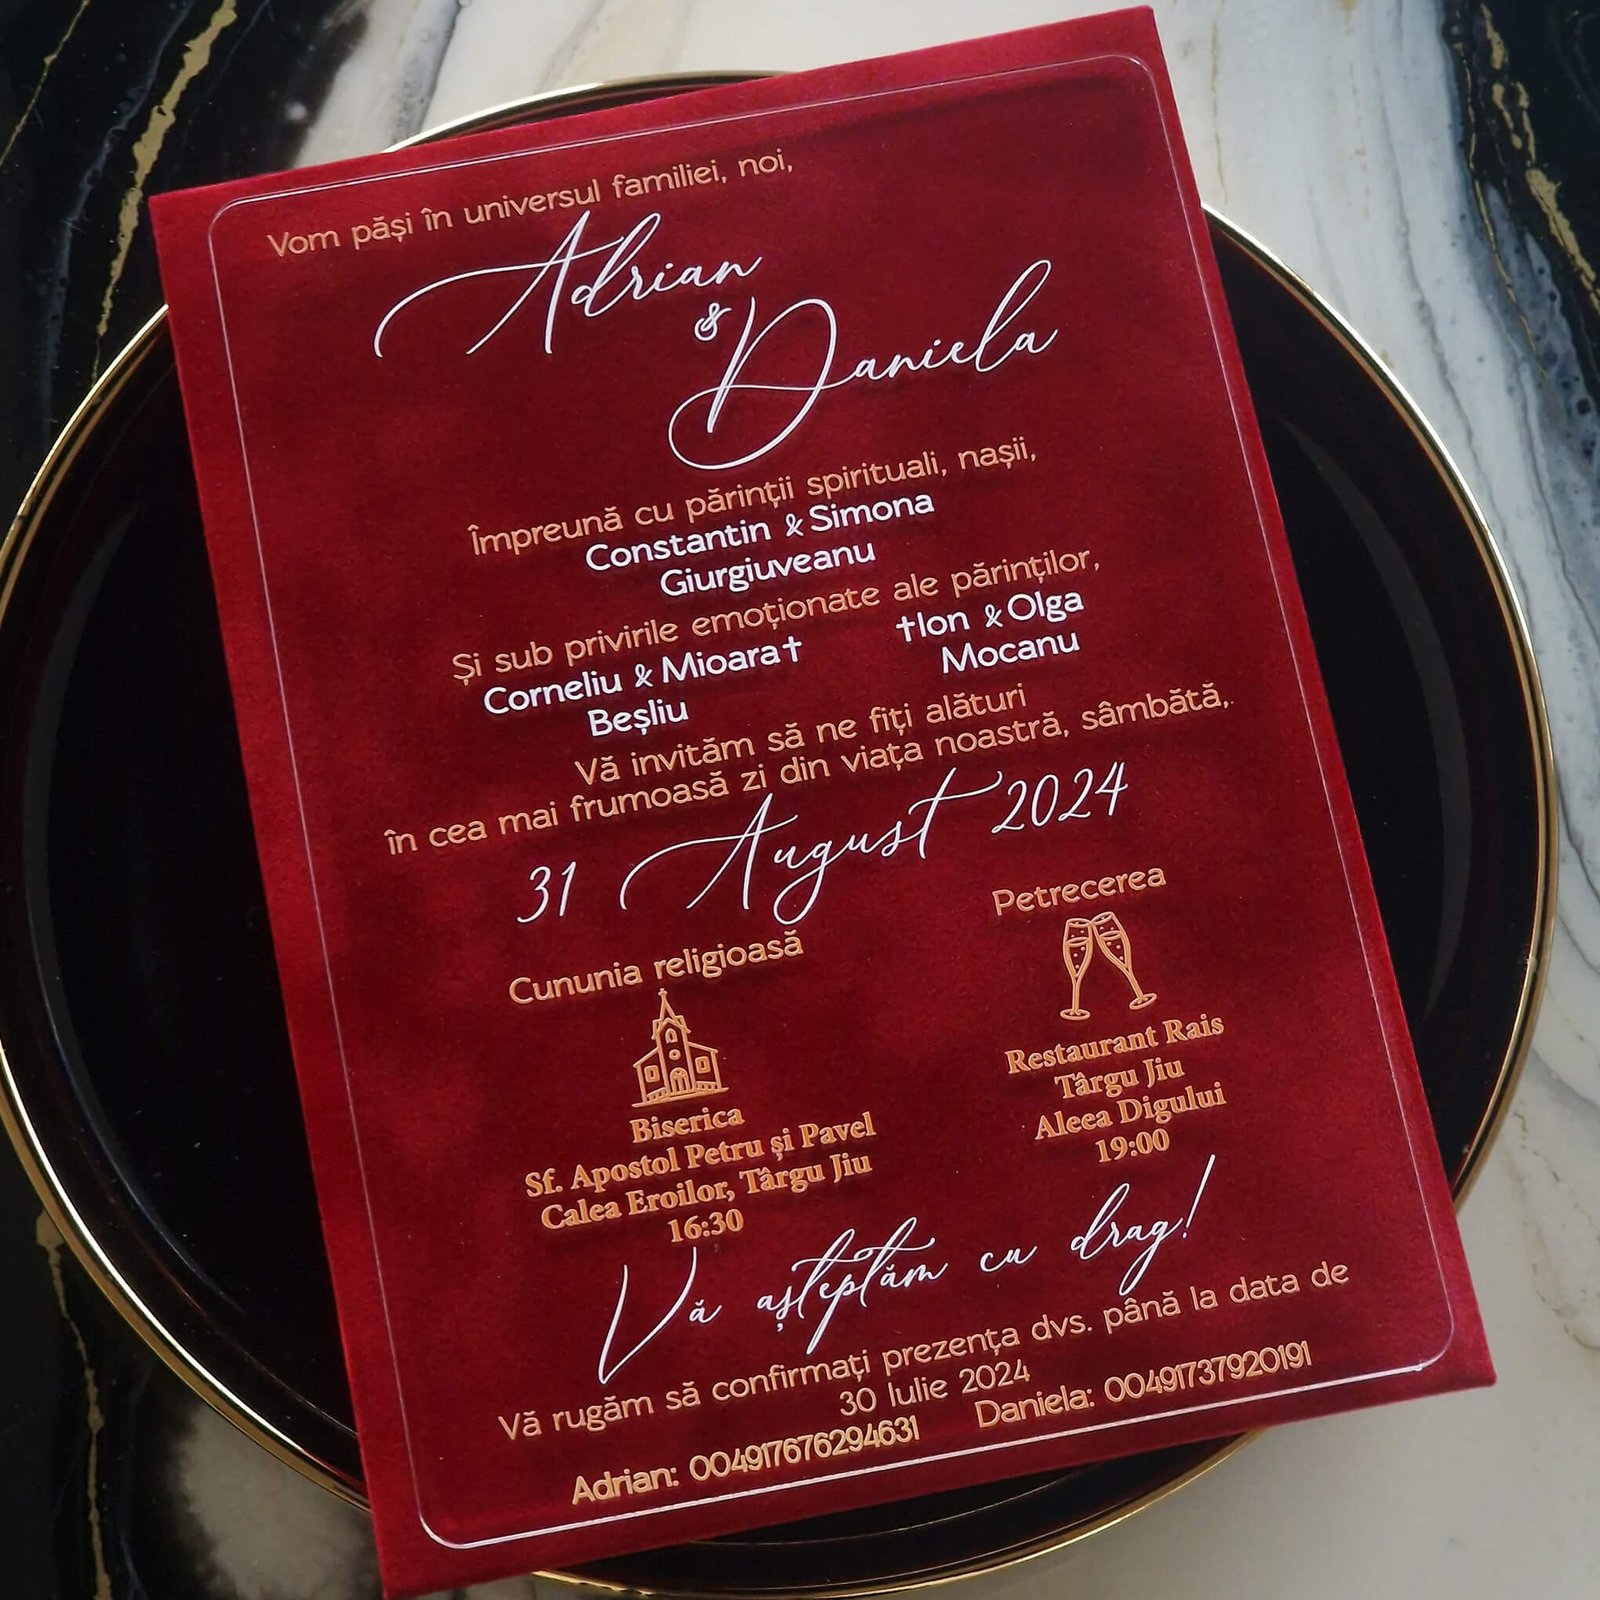 Vom păși în universul familiei, noi,
Adrian
&
Daniela
Împreună cu părinții spirituali, nașii,
Constantin & Simona
Giurgiuveanu
Și sub privirile emoționate ale părinților,
Corneliu & Mioara†
Beșliu
†Ion & Olga
Mocanu
Vă invităm să ne fiți alături
în cea mai frumoasă zi din viața noastră, sâmbătă,
31 August 2024
Cununia religioasă
Biserica
Sf. Apostol Petru și Pavel
Calea Eroilor, Târgu Jiu
16:30
Petrecerea
Restaurant Rais
Târgu Jiu
Aleea Digului
19:00
Vă așteptăm cu drag!
Vă rugăm să confirmați prezența dvs. până la data de
30 Iulie 2024
Adrian: 004917676294631 Daniela: 00491737920191